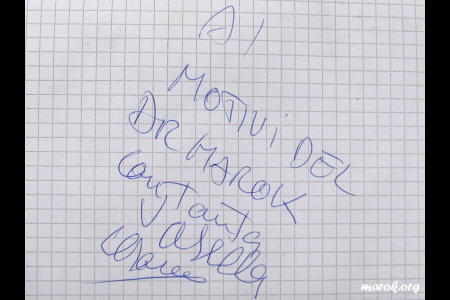 AI
MOTIVI DEL
DR MAROK
con tanta
marok.org